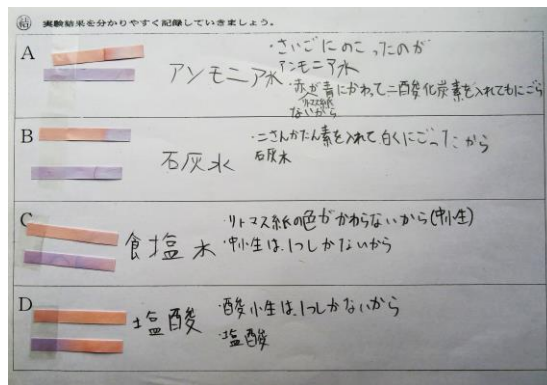 結 実験結果を分かりやすく記録していきましょう。
A
アンモニア水
・さいごにのこったのが
アンモニア水
・赤が青にかわって二酸化炭素を入れてもにごら
リトマス紙
ないから
B
石灰水
・二さんかたん素を入れて、白くにごったから
石灰水
C
食塩水
・リトマス紙の色がかわらないから(中小生)
・中小生は、1つしかないから
D
塩酸
・酸小生は、1つしかないから
・塩酸